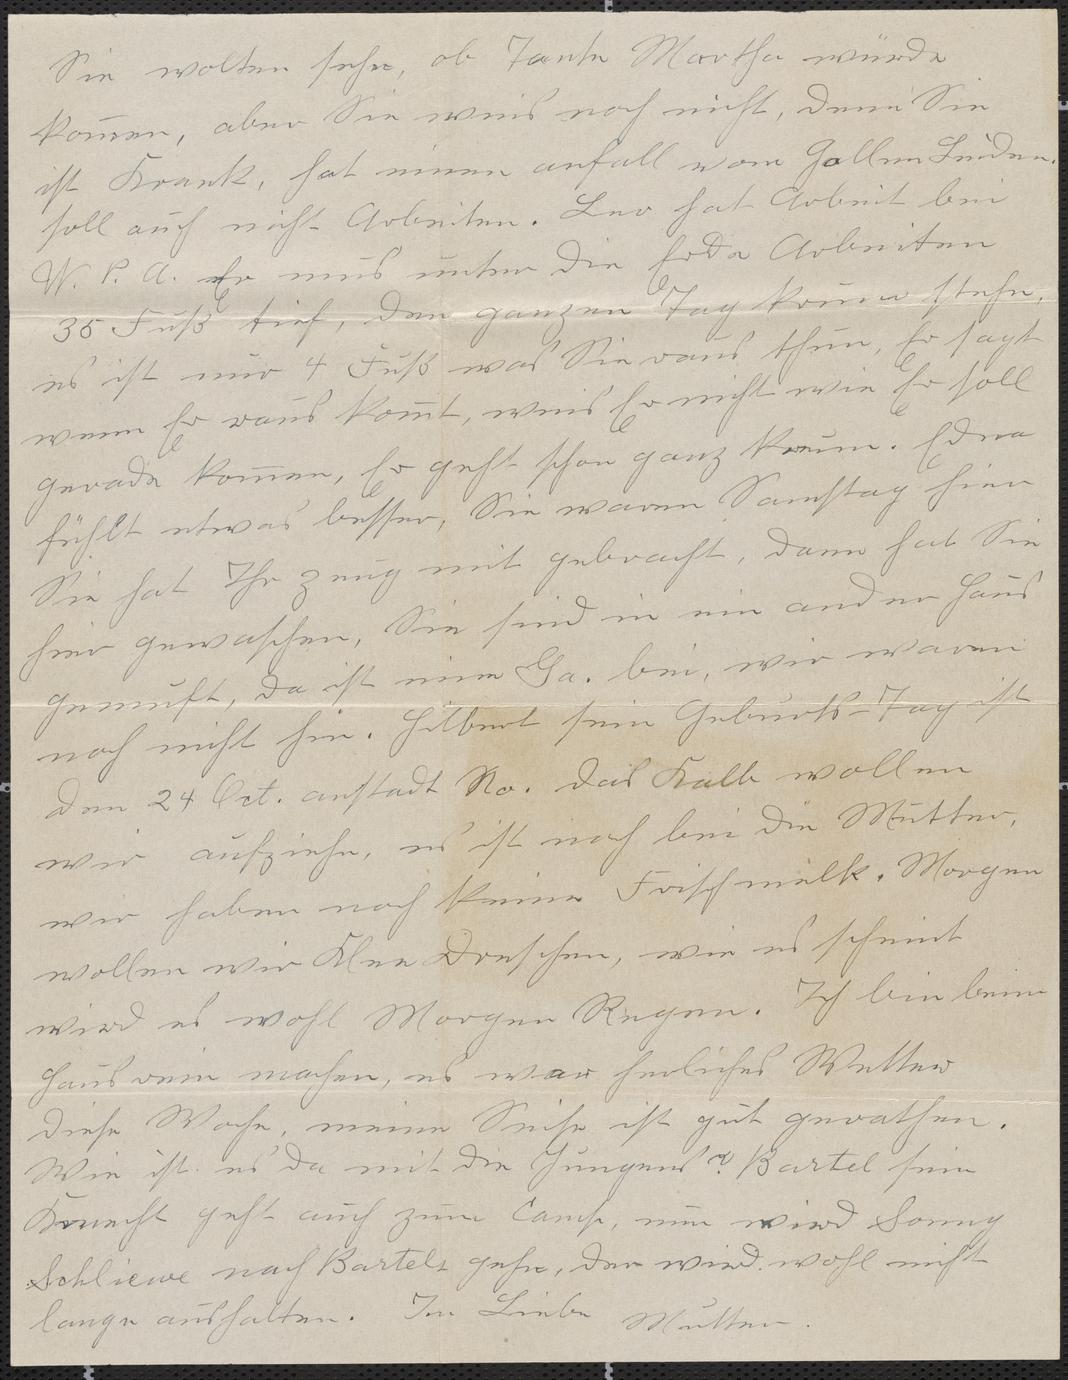 Sie wolten sehn, ob Tante Martha würde
kom̄en, aber Sie weis noch nicht, denn Sie
ist Krank, hat einen anfall vom Gallen Leiden.
soll auch nicht Arbeiten. Leo hat Arbeit bei
W. P. A. Er mus unter die Erda Arbeiten
35 Fuß tief, den ganzen Tag krum stehn,
es ist nur 4 Fuß was Sie raus thun, Er sagt
wenn Er raus kom̄t, weis Er nicht wie Er soll
gerade kom̄en, Er geht schon ganz krum. Edna
fühlt etwas besser, Sie waren Samstag hier
Sie hat Ihr zeug mit gebracht, dann hat Sie
hier gewaschen, Sie sind in ein ander Haus
gemuft, da ist eine Ga. bei, wir waren
noch nicht hin. Hilbert sein Geburts-Tag ist
den 24 Oct. anstadt No. das Kalb wollen
wir aufziehn, es ist noch bei die Mutter,
wir haben noch keine Frischmilk. Morgen
wollen wir Klee Dreschen, wie es scheint
wird es wohl Morgen Regnen. Ich bin beim
Haus rein machen, es war herliches Wetter
diese Woche, meine Seife ist gut gerathen.
Wie ist es da mit die Jungens? Bartel sein
Knecht geht auch zum Camp, nun wird Sonny
Schliewe nach Bartels gehn, der wird wohl nicht
lange aushalten. In Liebe Mutter.